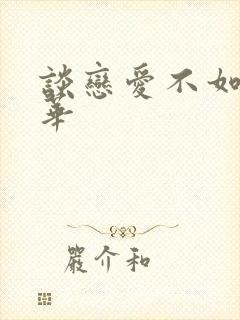 談戀愛不如
華
嚴介和